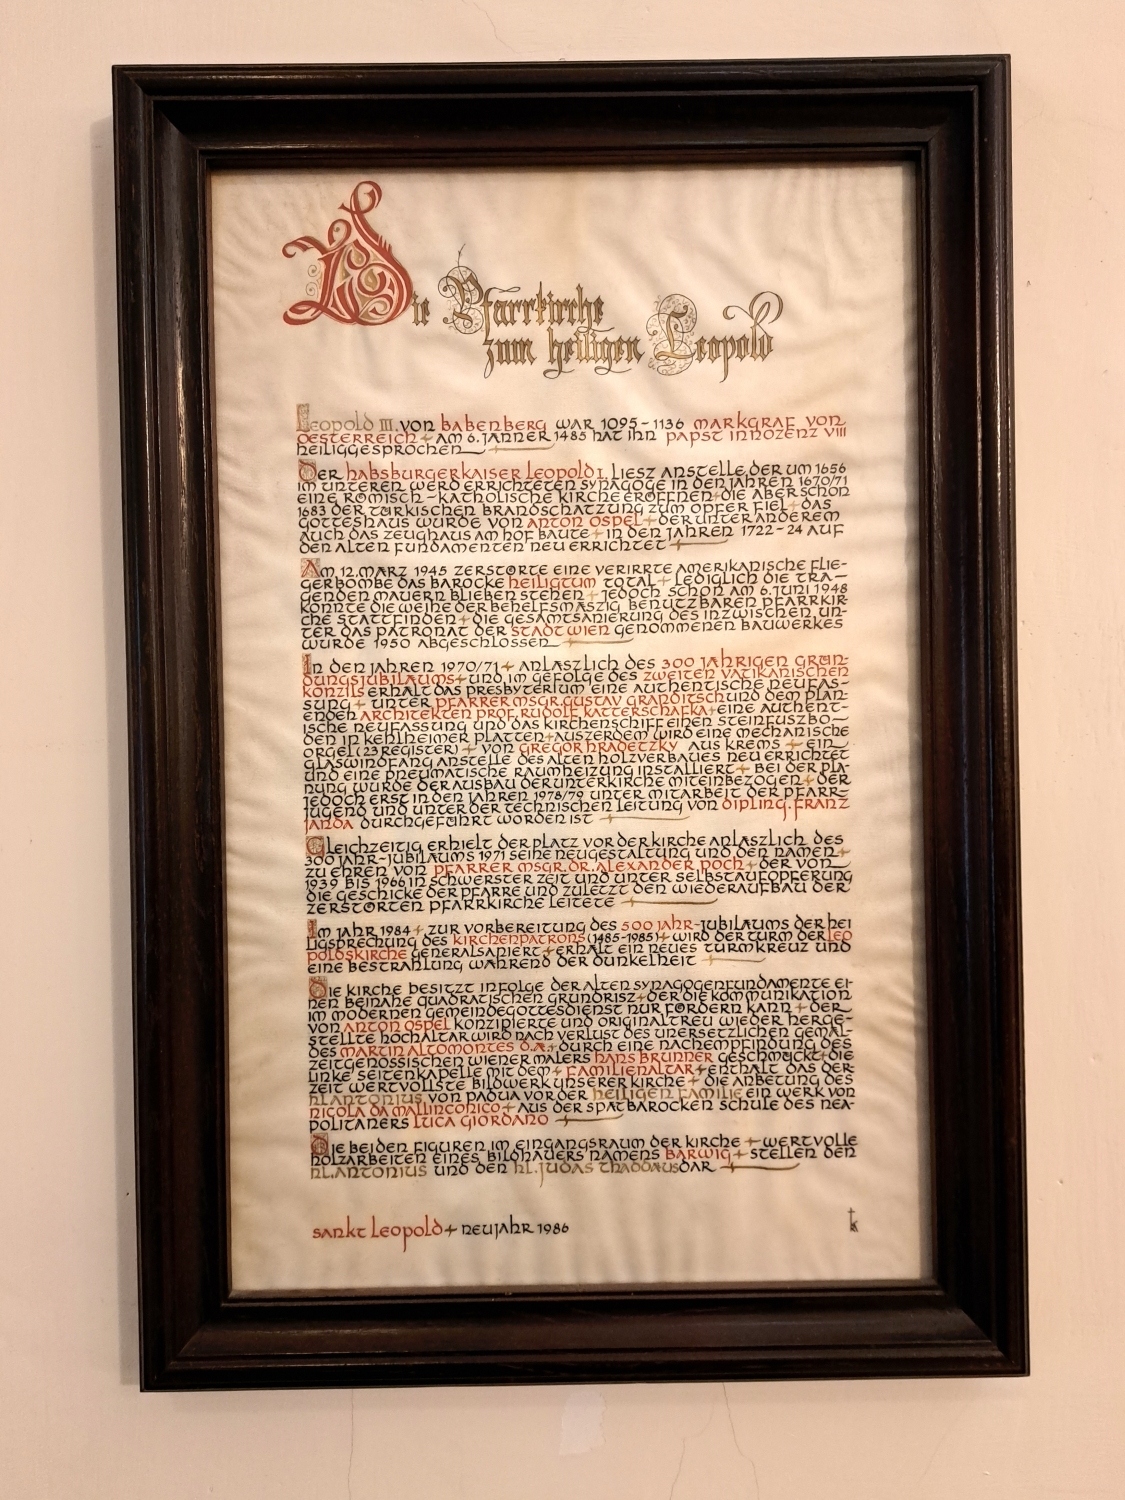 Die Pfarrkirche
zum heiligen Leopold
Leopold III. von Babenberg war 1095-1136 Markgraf von
Oesterreich + am 6. Jänner 1485 hat ihn Papst Innozenz VIII
heiliggesprochen
Der Habsburgerkaiser Leopold I. liesz anstelle der um 1656
im unteren Werd errichteten Synagoge in den Jahren 1670/71
eine römisch-katholische Kirche eröffnen + die aber schon
1683 der türkischen Brandschatzung zum Opfer fiel + das
Gotteshaus wurde von Anton Ospel + der unter anderem
auch das Zeughaus am Hof baute + in den Jahren 1722-24 auf
den alten Fundamenten neu errichtet
Am 12. März 1945 zerstörte eine verirrte amerikanische Flie-
gerbombe das barocke Heiligtum total + lediglich die tra-
genden Mauern blieben stehen + jedoch schon am 6. Juni 1948
konnte die Weihe der behelfsmäszig benützbaren Pfarrkir-
che stattfinden + die Gesamtsanierung des inzwischen un-
ter das Patronat der Stadt Wien genommenen Bauwerkes
wurde 1950 abgeschlossen
In den Jahren 1970/71 + anläszlich des 300 jährigen Grün-
dungsjubiläums + und im Gefolge des Zweiten Vatikanischen
Konzils erhält das Presbyterium eine authentische Neufas-
sung + unter Pfarrer Msgr. Gustav Granditsch und dem plan-
enden Architekten Prof. Rudolf Katterschafka + eine authent-
ische Neufassung und das Kirchenschiff einen Steinfuszbo-
den in Kehlheimer Platten + auszerdem wird eine mechanische
Orgel (23 Register) + von Gregor Hradetzky aus Krems + ein
Glaswindfang anstelle des alten Holzverbaues neu errichtet
und eine pneumatische Raumheizung installiert + bei der Pla-
nung wurde der Ausbau der Unterkirche miteinbezogen + der
jedoch erst in den Jahren 1978/79 unter Mitarbeit der Pfarr-
jugend und unter der technischen Leitung von Dipl.Ing. Franz
Janda durchgeführt worden ist
Gleichzeitig erhielt der Platz vor der Kirche anläszlich des
300 Jahr-Jubiläums 1971 seine Neugestaltung und den Namen +
zu Ehren von Pfarrer Msgr. Dr. Alexander Poch + der von
1939 bis 1966 in schwerster Zeit und unter Selbstaufopferung
die Geschicke der Pfarre und zuletzt den Wiederaufbau der
zerstörten Pfarrkirche leitete
Im Jahr 1984 + zur Vorbereitung des 500 Jahr-Jubiläums der Hei
ligsprechung des Kirchenpatrons (1485-1985) + wird der Turm der Leo
poldskirche generalsaniert + erhält ein neues Turmkreuz und
eine Bestrahlung während der Dunkelheit
Die Kirche besitzt infolge der alten Synagogenfundamente ei-
nen beinahe quadratischen Grundrisz + der die Kommunikation
im modernen Gemeindegottesdienst nur fördern kann + der
von Anton Ospel konzipierte und originaltreu wieder herge-
stellte Hochaltar wird nach Verlust des unersetzlichen Gemäl-
des Martin Altomontes d.Ä. + durch eine Nachempfindung des
zeitgenössischen Wiener Malers Hans Brunner geschmückt + die
linke Seitenkapelle mit dem + Familienaltar + enthält das der-
zeit wertvollste Bildwerk unserer Kirche + die Anbetung des
hl. Antonius von Padua vor der heiligen Familie ein Werk von
Nicola da Mallinconico + aus der spätbarocken Schule des Nea-
politaners Luca Giordano
Die beiden Figuren im Eingangsraum der Kirche + wertvolle
Holzarbeiten eines Bildhauers namens Barwig + stellen den
hl. Antonius und den hl. Judas Thaddäus dar
Sankt Leopold + Neujahr 1986